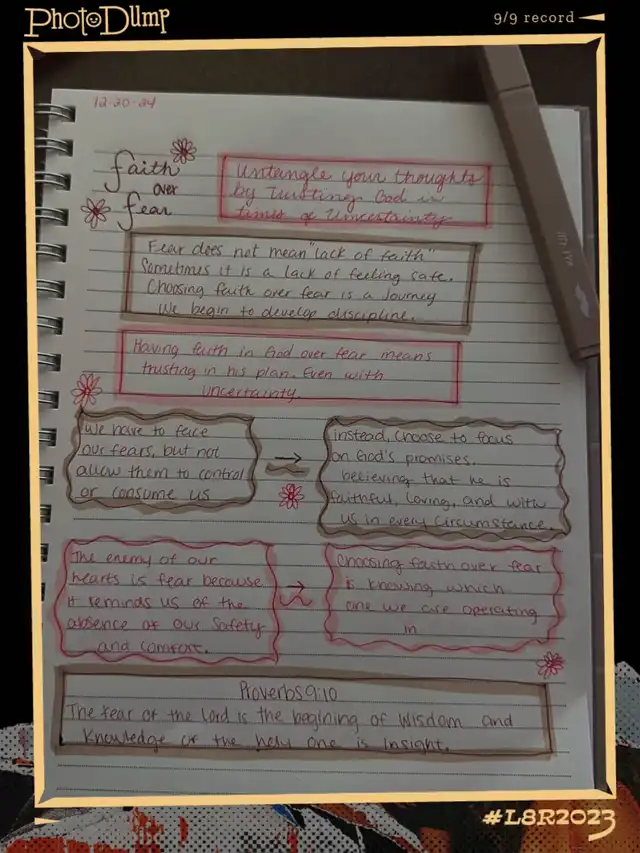 PhotoDump
9/9 record
12-20-24
faith
over
fear
Untangle your thoughts
by Trusting God in
times of Uncertainty.
Fear does not mean "lack of faith"
Sometimes it is a lack of feeling safe.
Choosing faith over fear is a Journey
We begin to develop discipline.
Having faith in God over fear means
trusting in his plan. Even with
uncertainty.
We have to face
our fears, but not
allow them to control
or consume us
instead, choose to focus
on God's promises.
believing that he is
faithful, loving, and with
us in every circumstance.
The enemy of our
hearts is fear because
it reminds us of the
absence of our safety
and comfort.
Choosing faith over fear
is knowing which
one we are operating
in
Proverbs 9:10
The fear of the Lord is the begining of Wisdom and
Knowledge of the holy one is insight.
#L8R2023